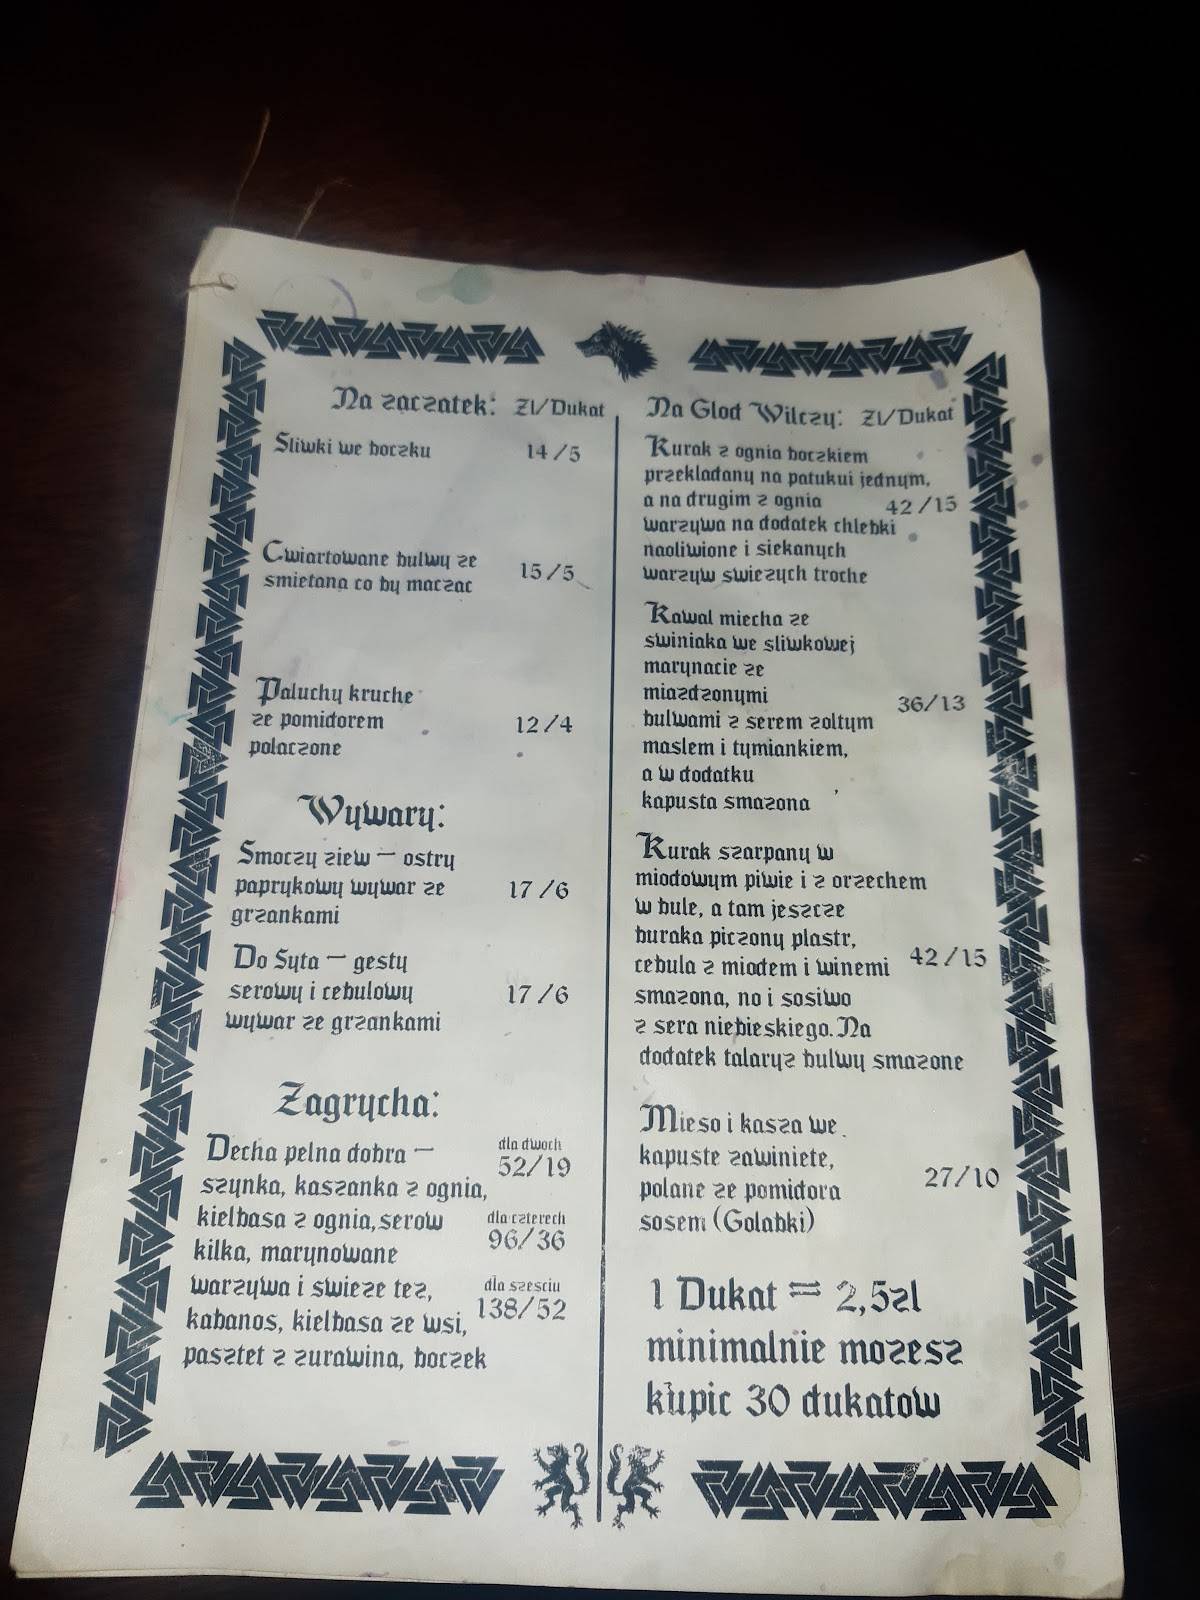 Na zaczatek: Zl/Dukat
Sliwki we boczku 14/5
Cwiartowane bulwy ze
smietana co by maczac 15/5
Paluchy kruche
ze pomidorem 12/4
polaczone
Wywary:
Smoczy ziew – ostry
paprykowy wywar ze 17/6
grzankami
Do Syta – gesty
serowy i cebulowy 17/6
wywar ze grzankami
Zagrycha:
Decha pelna dobra – dla dwoch
52/19
szynka, kaszanka z ognia,
kielbasa z ognia, serow dla czterech
96/36
kilka, marynowane
warzywa i swieze tez, dla szesciu
138/52
kabanos, kielbasa ze wsi,
pasztet z zurawina, boczek
Na Glod Wilczy: Zl/Dukat
Kurak z ognia boczkiem
przekladany na patukui jednym,
a na drugim z ognia 42/15
warzywa na dodatek chlebki
naoliwione i siekanych
warzyw swiezych troche
Kawal miecha ze
swiniaka we sliwkowej
marynacie ze
miazdzonymi 36/13
bulwami z serem zoltym
maslem i tymiankiem,
a w dodatku
kapusta smazona
Kurak szarpany w
miodowym piwie i z orzechem
w bule, a tam jeszcze
buraka piczony plastr,
cebula z miodem i winemi 42/15
smazona, no i sosiwo
z sera niebieskiego. Na
dodatek talaryz bulwy smazone
Mieso i kasza we
kapuste zawiniete, 27/10
polane ze pomidora
sosem (Golabki)
1 Dukat = 2,5zl
minimalnie mozesz
kupic 30 dukatow